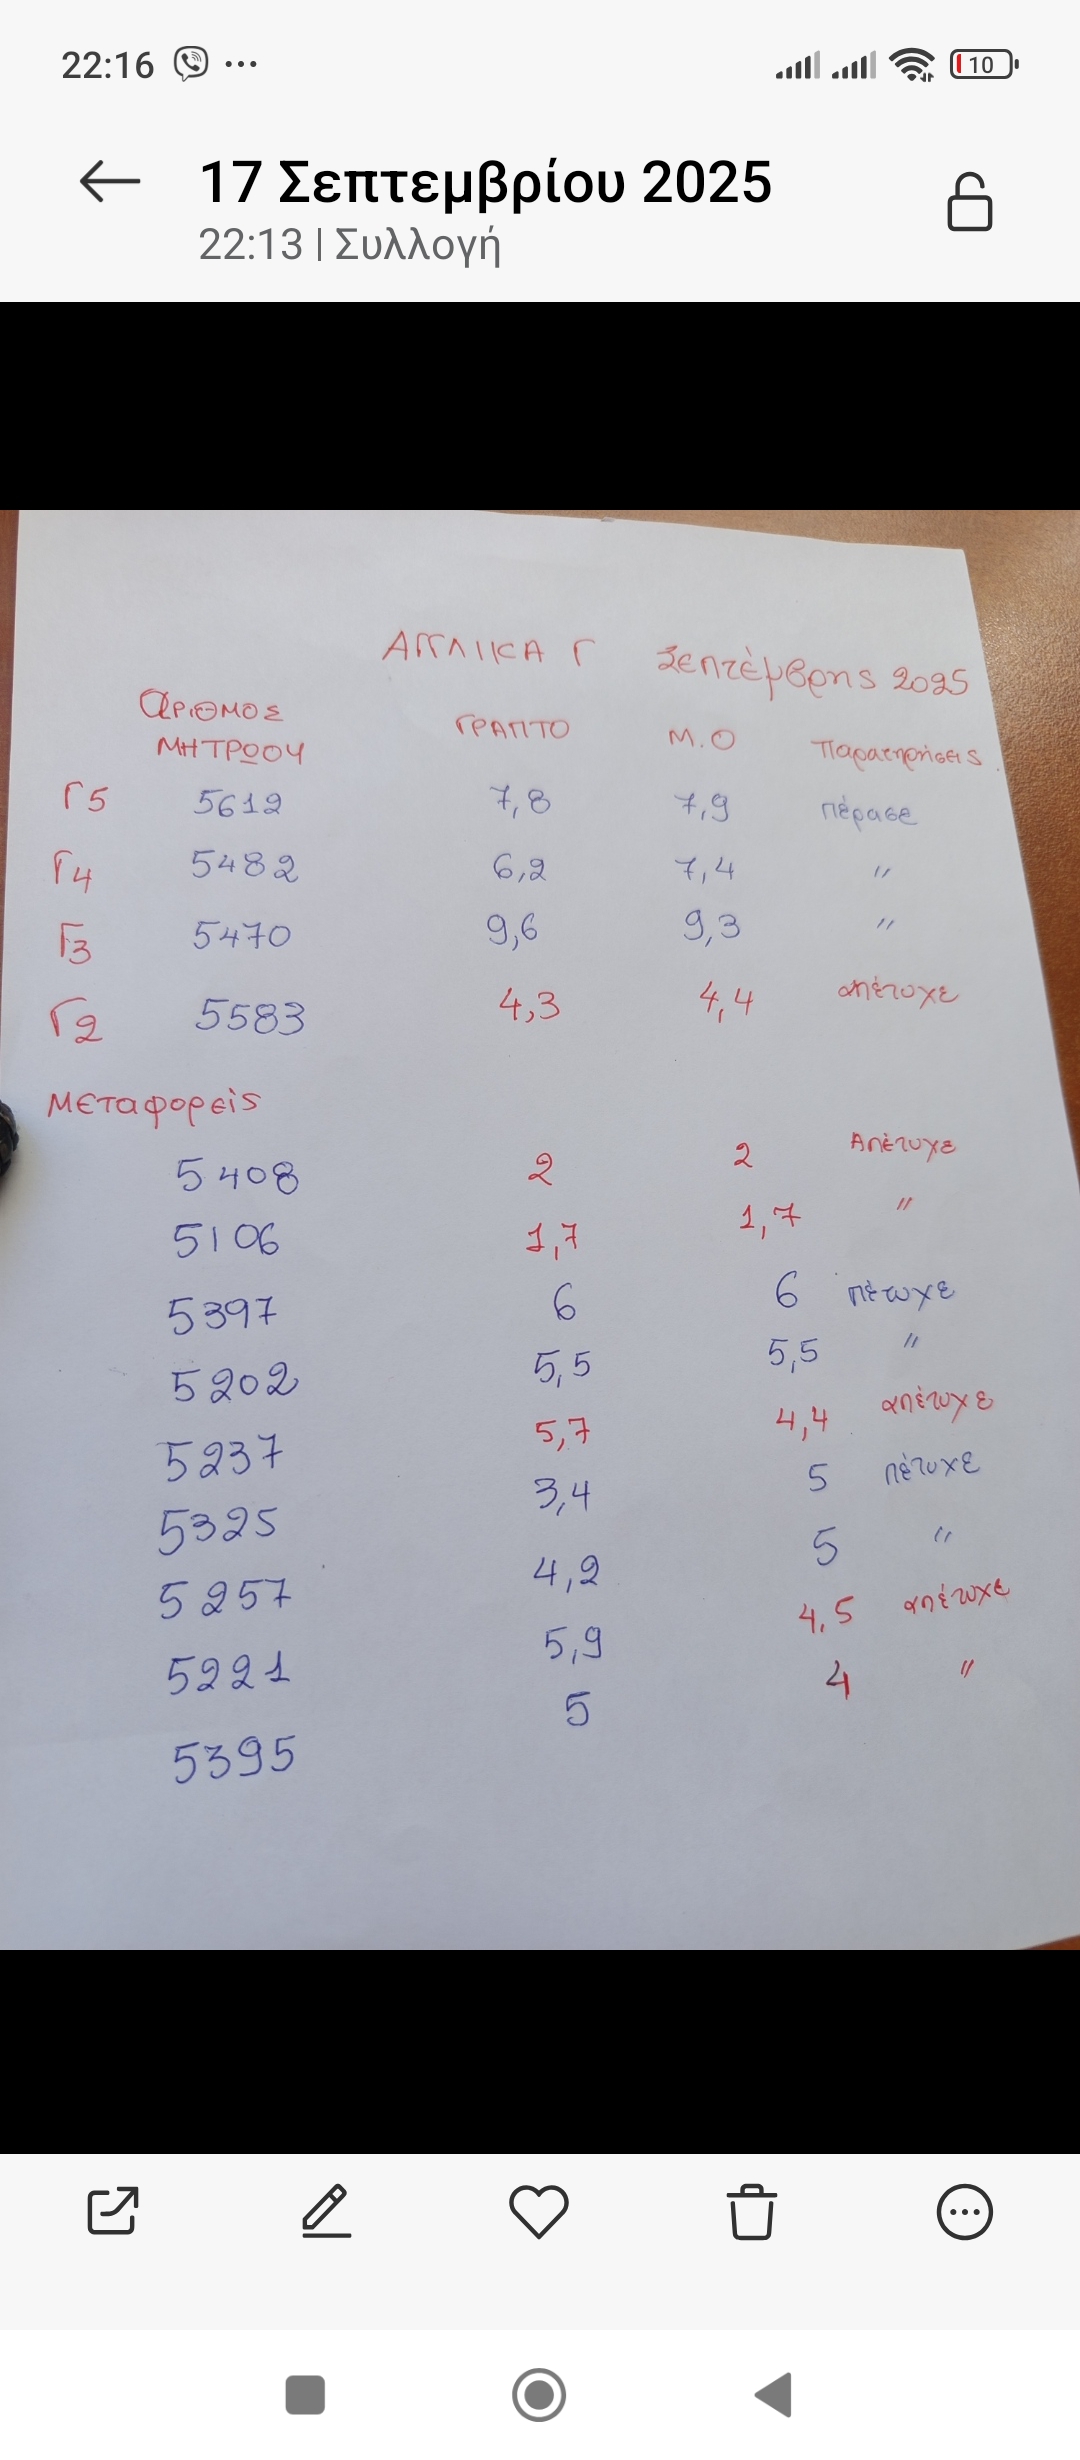 22:16 ...
10
17 Σεπτεμβρίου 2025
22:13 | Συλλογή
ΑΓΓΛΙΚΑ Γ Σεπτέμβρης 2025
ΑΡΙΘΜΟΣ ΜΗΤΡΩΟΥ ΓΡΑΠΤΟ Μ.Ο Παρατηρήσεις
Γ5 5612 7,8 7,9 πέρασε
Γ4 5482 6,2 7,4 "
Γ3 5470 9,6 9,3 "
Γ2 5583 4,3 4,4 απέτυχε
Μεταφορείς
5408 2 2 Απέτυχε
5106 1,7 1,7 "
5397 6 6 πέτυχε
5202 5,5 5,5 "
5237 5,7 4,4 απέτυχε
5325 3,4 5 πέτυχε
5257 4,2 5 "
5221 5,9 4,5 απέτυχε
5395 5 4 "